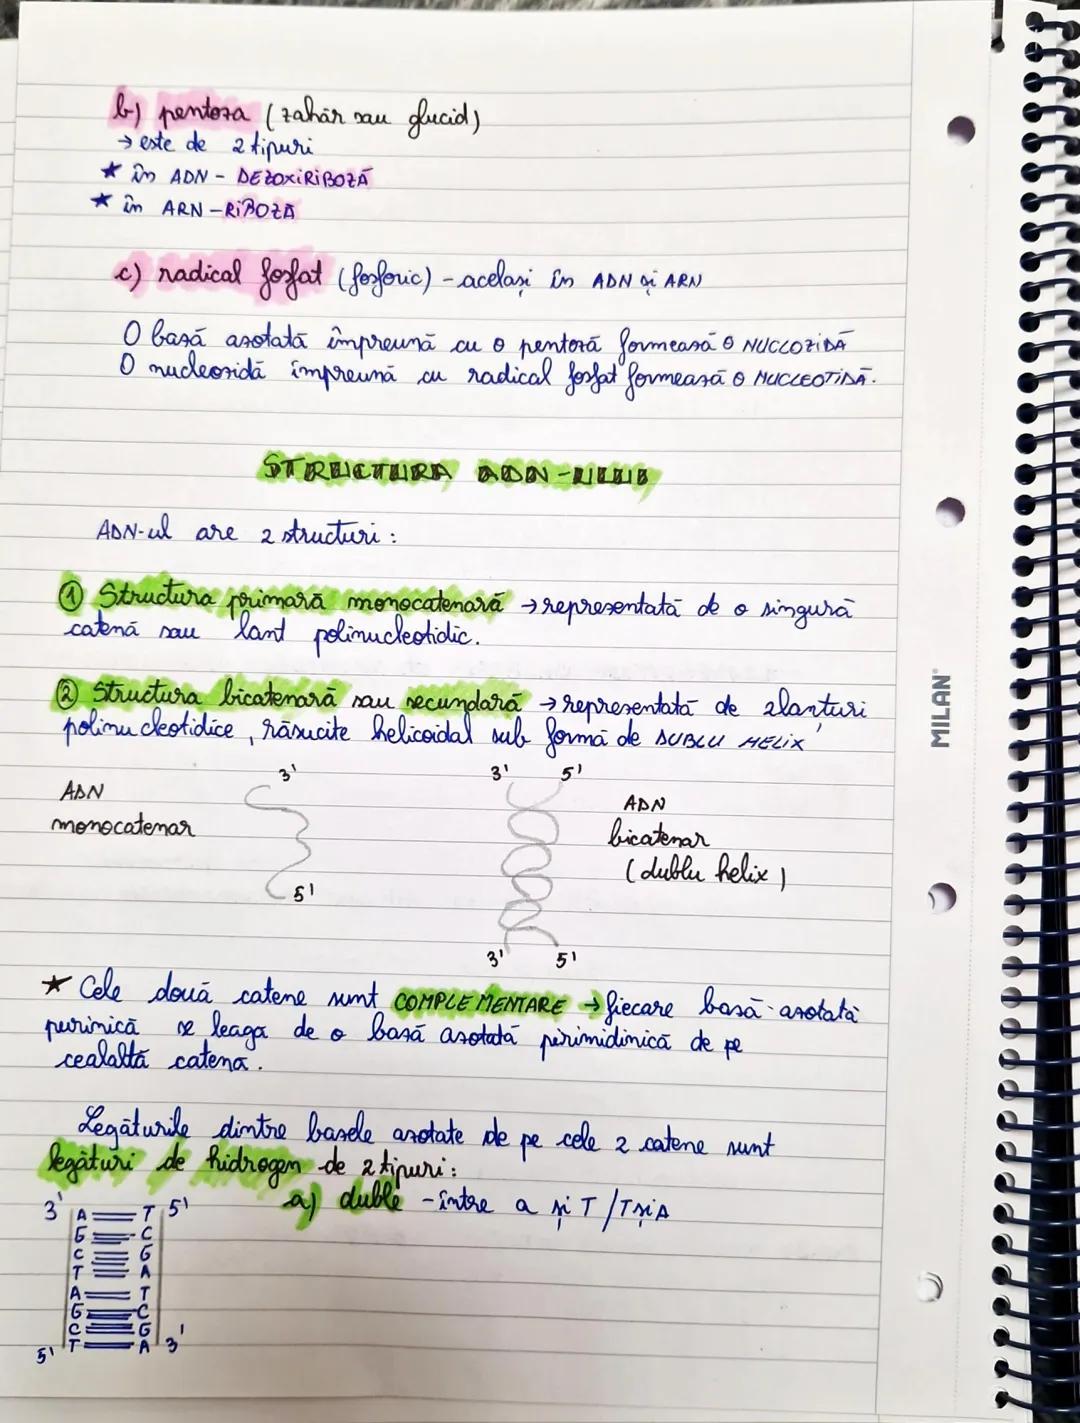 b) pentoza (zahăr sau glucid)
→ este de 2 tipuri
★ în ADN - DEZOXIRIBOZĂ
★ în ARN - RIBOZĂ
c) radical fosfat (fosforic) - același în ADN și ARN
O bază azotată împreună cu o pentoză formează o NUCLOZIDĂ
O nucleozidă împreună cu radical fosfat formează o NUCLEOTIDĂ.
STRUCTURA ADN-ULUI
ADN-ul are 2 structuri:
① Structura primară monocatenară → reprezentată de o singură
catenă sau lant polinucleotidic.
② Structura bicatenară sau secundară → reprezentată de 2 lanțuri
polinucleotidice, răsucite helicoidal sub formă de DUBLU HELIX
3' 3' 5'
ADN
monocatenar
ADN
bicatenar
(dublu helix)
5'
3' 5'
★ Cele două catene sunt COMPLEMENTARE → fiecare bază azotată
purinică se leaga de o bază azotată pirimidinică de pe
cealaltă catenă.
Legăturile dintre bazele azotate de pe cele 2 catene sunt
legături de hidrogen de 2 tipuri:
a) duble - între a și T / T și A
3' A T 5'
G C
C G
T A
A T
G C
C G
5' T A 3'
MILAN